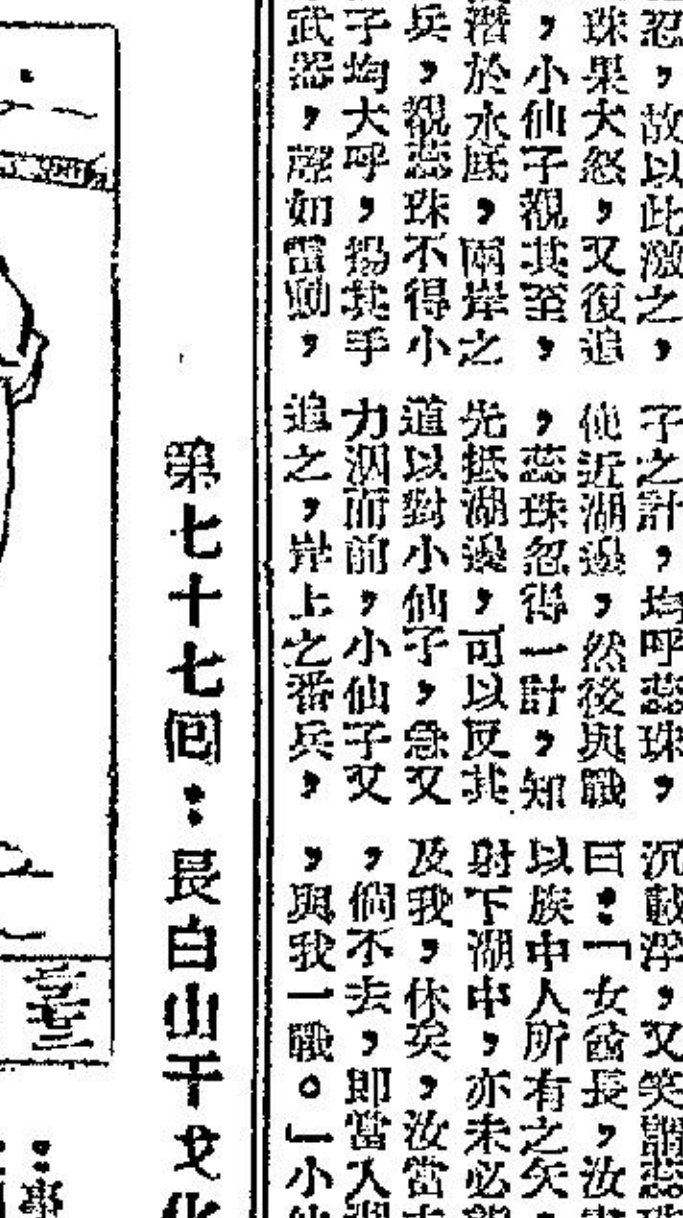 忍，故以此激之，
珠果大怒，又復追
，小仙子覩其至，
潛於水底，兩岸之
兵，覩蕊珠不得小
子均大呼，揚其手
武器，聲如雷動，
子之計，均呼蕊珠，
使近湖邊，然後與戰
，蕊珠忽得一計，知
先抵湖邊，可以反其
道以對小仙子，急又
力泅而前，小仙子又
追之，岸上之番兵，
沉載浮，又笑謂蕊珠
曰：「女酋長，汝
以族中人所有之矢，
射下湖中，亦未必
及我，休矣，汝當
，倘不去，即當入湖
，與我一戰。」小仙
第七十七回：長白山干戈化
：事